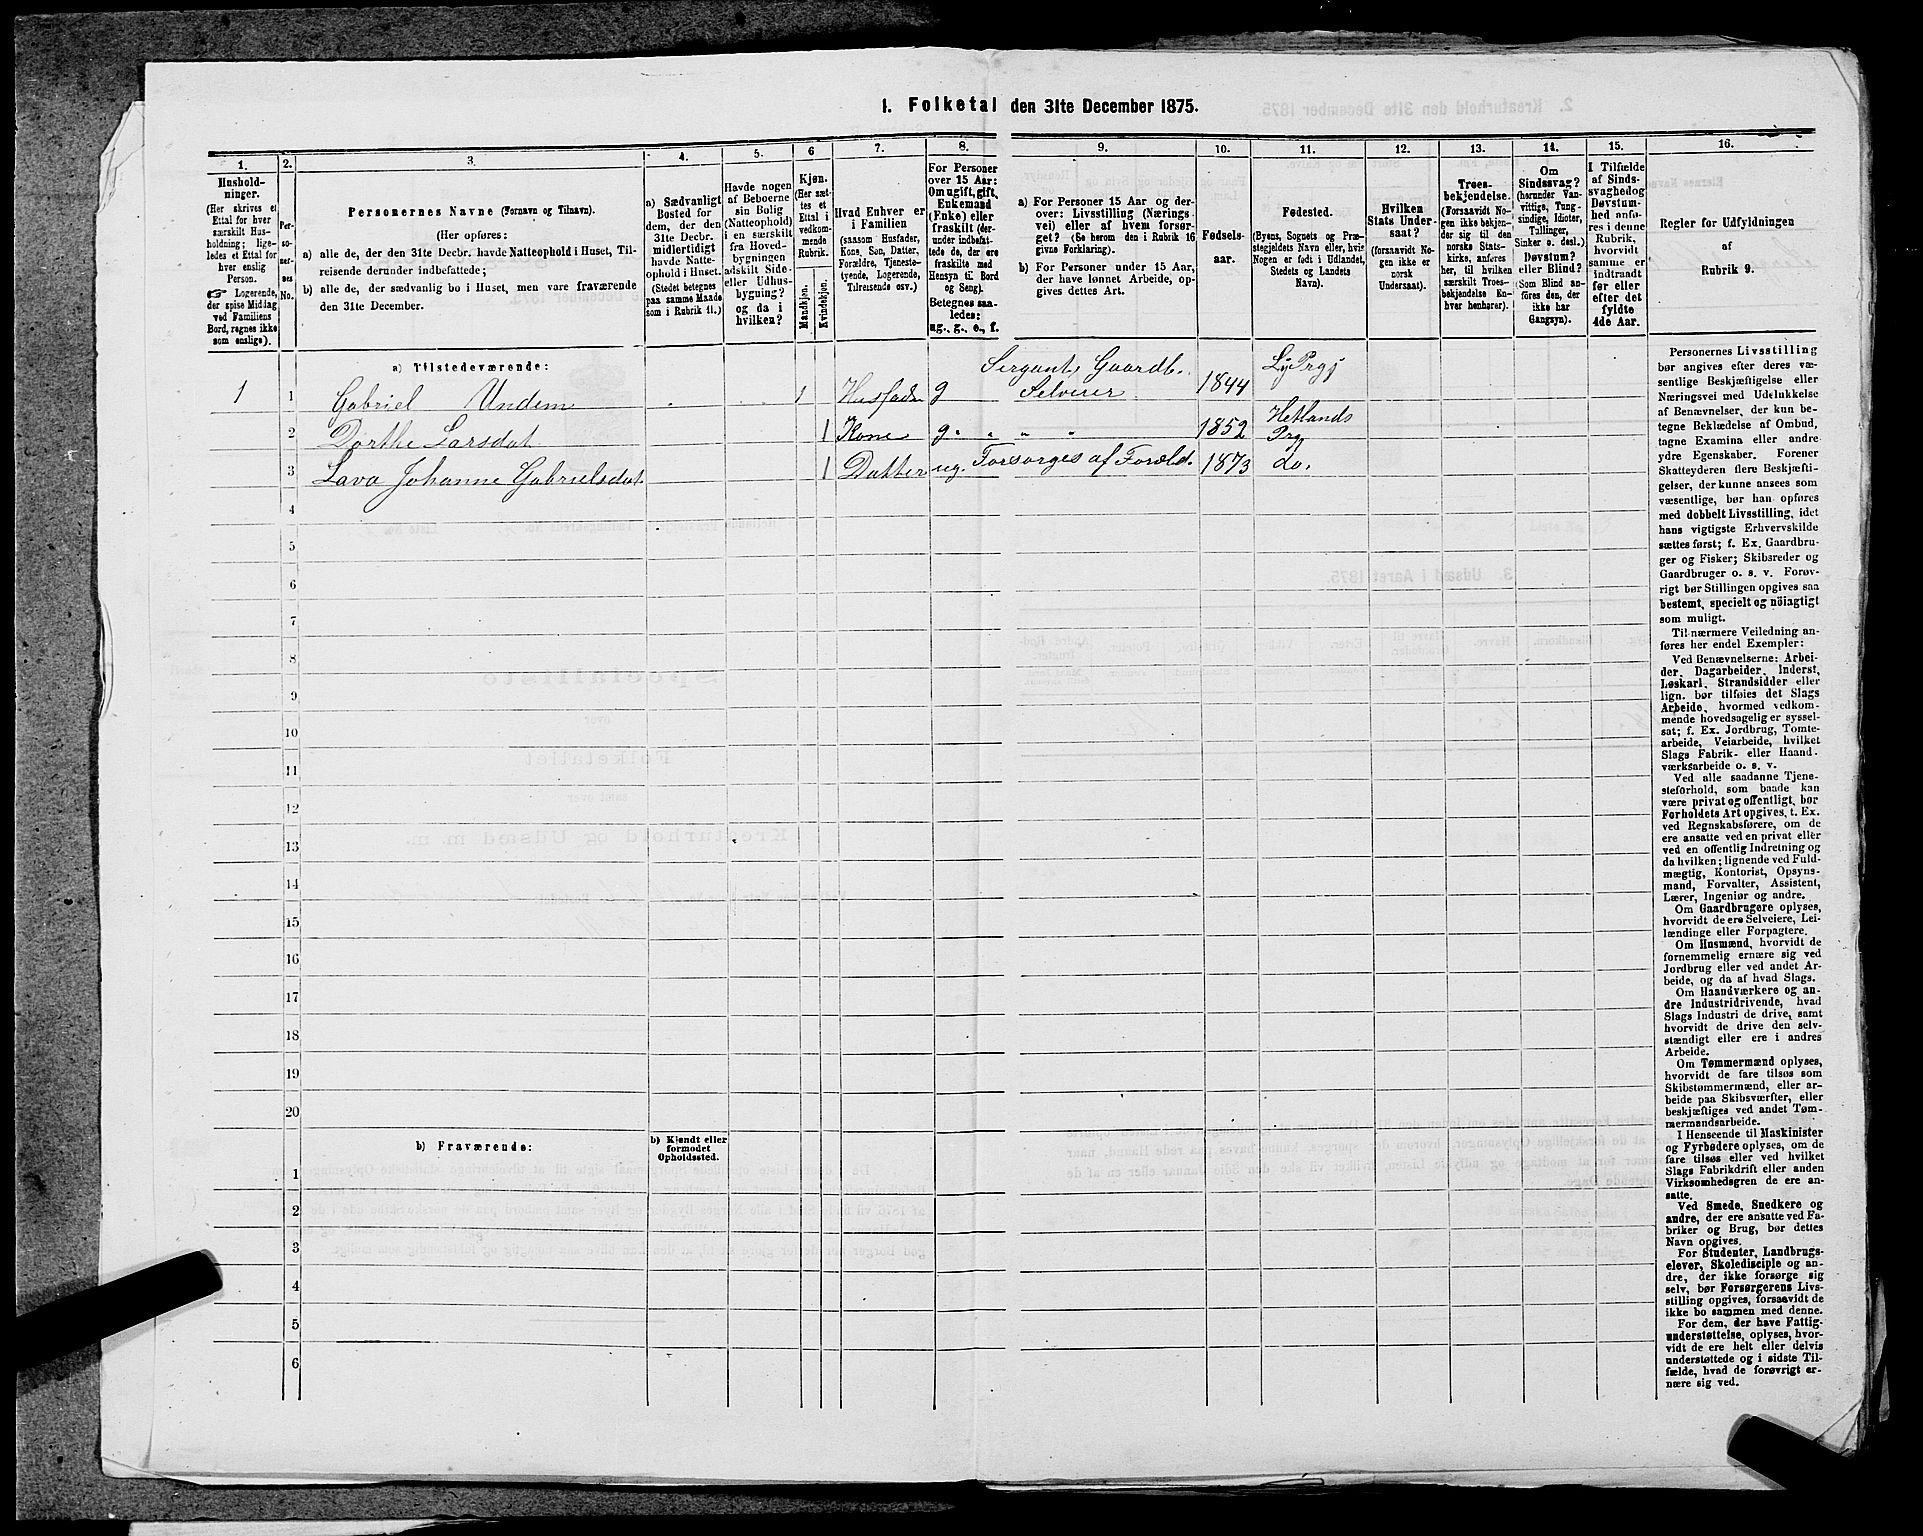 1. Folketal den 31te December 1875.
1. 2. 3. 4. 5. 6 7. 8. 9. 10. 11. 12. 13. 14. 15. 16.
Hushold-
ninger.
(Her skrives et
Ettal for hver
særskilt Hus-
holdning; lige-
ledes et Ettal for
hver enslig
Person.
☞ Logerende,
der spise Middag
ved Familiens
Bord, regnes ikke
som enslige).
Per-
so-
ner-
nes
No.
Personernes Navne (Fornavn og Tilnavn).
(Her opføres:
a) alle de, der den 31te Decbr. havde Natteophold i Huset, Til-
reisende derunder indbefattede;
b) alle de, der sædvanlig bo i Huset, men vare fraværende
den 31te December.
a) Sædvanligt
Bosted for
dem, der den
31te Decbr.
midlertidigt
havde Natte-
ophold i Huset.
(Stedet betegnes
paa samme Maade
som i Rubrik 11.)
Havde nogen
af Beboerne
sin Bolig
(Natteophold)
i en særskilt
fra Hoved-
bygningen
adskilt Side-
eller Udhus-
bygning?
og da i
hvilken?
Kjøn.
(Her sæt-
tes et
Ettal i
vedkom-
mende
Rubrik.
Mandkjøn.
Kvindekjøn.
Hvad Enhver er
i Familien
(saasom Husfader,
Kone, Søn, Datter,
Forældre, Tjeneste-
tyende, Logerende,
Tilreisende osv.)
For Personer
over 15 Aar:
Om ugift, gift,
Enkemand
(Enke) eller
fraskilt (der-
under indbefat-
tede de, der ere
fraskilte med
Hensyn til Bord
og Seng).
Betegnes saa-
ledes:
ug., g., e., f.
a) For Personer 15 Aar og der-
over: Livsstilling (Nærings-
vei) eller af hvem forsør-
get? (Se herom den i Rubrik 16
givne Forklaring).
b) For Personer under 15 Aar,
der have lønnet Arbeide, op-
gives dettes Art.
Fødsels-
aar.
Fødested.
(Byens, Sognets og Præ-
stegjeldets Navn eller, hvis
Nogen er født i Udlandet,
Stedets og Landets
Navn).
Hvilken
Stats Under-
saat?
(forsaavidt No-
gen ikke er
norsk
Undersaat).
Troes-
bekjendelse.
(Forsaavidt No-
gen ikke bekjen-
der sig til den
norske Stats-
kirke, anføres
her, til hvilken
særskilt Troes-
bekjendelse En-
hver henhører).
Om
Sindssvag?
(herunder Van-
vittige, Tung-
sindige, Idioter,
Tullinger,
Sinker o. desl.)
Døvstum?
eller Blind?
(Som Blind an-
føres den, der
ikke har
Gangsyn).
I Tilfælde
af Sinds-
svaghed og
Døvstum-
hed anfø-
res i denne
Rubrik,
hvorvidt
samme er
indtraadt
før eller
efter det
fyldte
4de Aar.
Regler for Udfyldningen
af
Rubrik 9.
a) Tilstedeværende:
1 1 Gabriel Undem 1 Husfader g Sergant, Gaardb. Selveier 1844 Ly Prgj
2 Dorthe Larsdat 1 Kone g. " " " 1852 Hetlands Prg
3 Lava Johanne Gabrielsdat 1 Datter ug. Forsørges af Foræld. 1873 do.
4
5
6
7
8
9
10
11
12
13
14
15
16
17
18
19
20
b) Fraværende:
b) Kjendt eller
formodet
Opholdssted.
1
2
3
4
5
6
Personernes Livsstilling
bør angives efter deres væ-
sentlige Beskjæftigelse eller
Næringsvei med Udelukkelse
af Benævnelser, der kun be-
tegne Beklædelse af Ombud,
tagne Examina eller andre
ydre Egenskaber. Forener
Skatteyderen flere Beskjæfti-
gelser, der kunne ansees som
væsentlige, bør han opføres
med dobbelt Livsstilling, idet
hans vigtigste Erhvervskilde
sættes først; f. Ex. Gaardbru-
ger og Fisker; Skibsreder og
Gaardbruger o. s. v. Forøv-
rigt bør Stillingen opgives saa
bestemt, specielt og nöiagtigt
som muligt.
Til nærmere Veiledning an-
føres her endel Exempler:
Ved Benævnelserne: Arbei-
der, Dagarbeider, Inderst,
Løskarl, Strandsidder eller
lign. bør tilføies det Slags
Arbeide, hvormed vedkom-
mende hovedsagelig er syssel-
sat; f. Ex. Jordbrug, Tomte-
arbeide, Veiarbeide, hvilket
Slags Fabrik- eller Haand-
værksarbeide o. s. v.
Ved alle saadanne Tjene-
steforhold, som baade kan
være privat og offentligt, bør
Forholdets Art opgives, t. Ex.
ved Regnskabsførere, om de
ere ansatte ved en privat eller
ved en offentlig Indretning og
da hvilken; lignende ved Fuld-
mægtig, Kontorist, Opsyns-
mand, Forvalter, Assistent,
Lærer, Ingeniør og andre.
Om Gaardbrugere oplyses,
hvorvidt de ere Selveiere, Lei-
lændinge eller Forpagtere.
Om Husmænd, hvorvidt de
fornemmelig ernære sig ved
Jordbrug eller ved andet Ar-
beide, og da af hvad Slags.
Om Haandværkere og an-
dre Industridrivende, hvad
Slags Industri de drive, samt
hvorvidt de drive den selv-
stændigt eller ere i andres
Arbeide.
Om Tømmermænd oplyses,
hvorvidt de fare tilsøs som
Skibstømmermænd, eller ar-
beide paa Skibsværfter, eller
beskjæftiges ved andet Tøm-
mermandsarbeide.
I Henseende til Maskinister
og Fyrbødere oplyses, om de
fare tilsøs eller ved hvilket
Slags Fabrikdrift eller anden
Virksomhedsgren de ere an-
satte.
Ved Smede, Snedkere og
andre, der ere ansatte ved Fa-
briker og Brug, bør dettes
Navn opgives.
For Studenter, Landbrugs-
elever, Skoledisciple og an-
dre, der ikke forsørge sig
selv, bør Forsørgerens Livs-
stilling opgives, forsaavidt de
ikke bo sammen med denne.
For dem, der have Fattig-
understøttelse, oplyses, hvor-
vidt de ere helt eller delvis
understøttede og i sidste Til-
fælde, hvad de forøvrigt er-
nære sig ved.